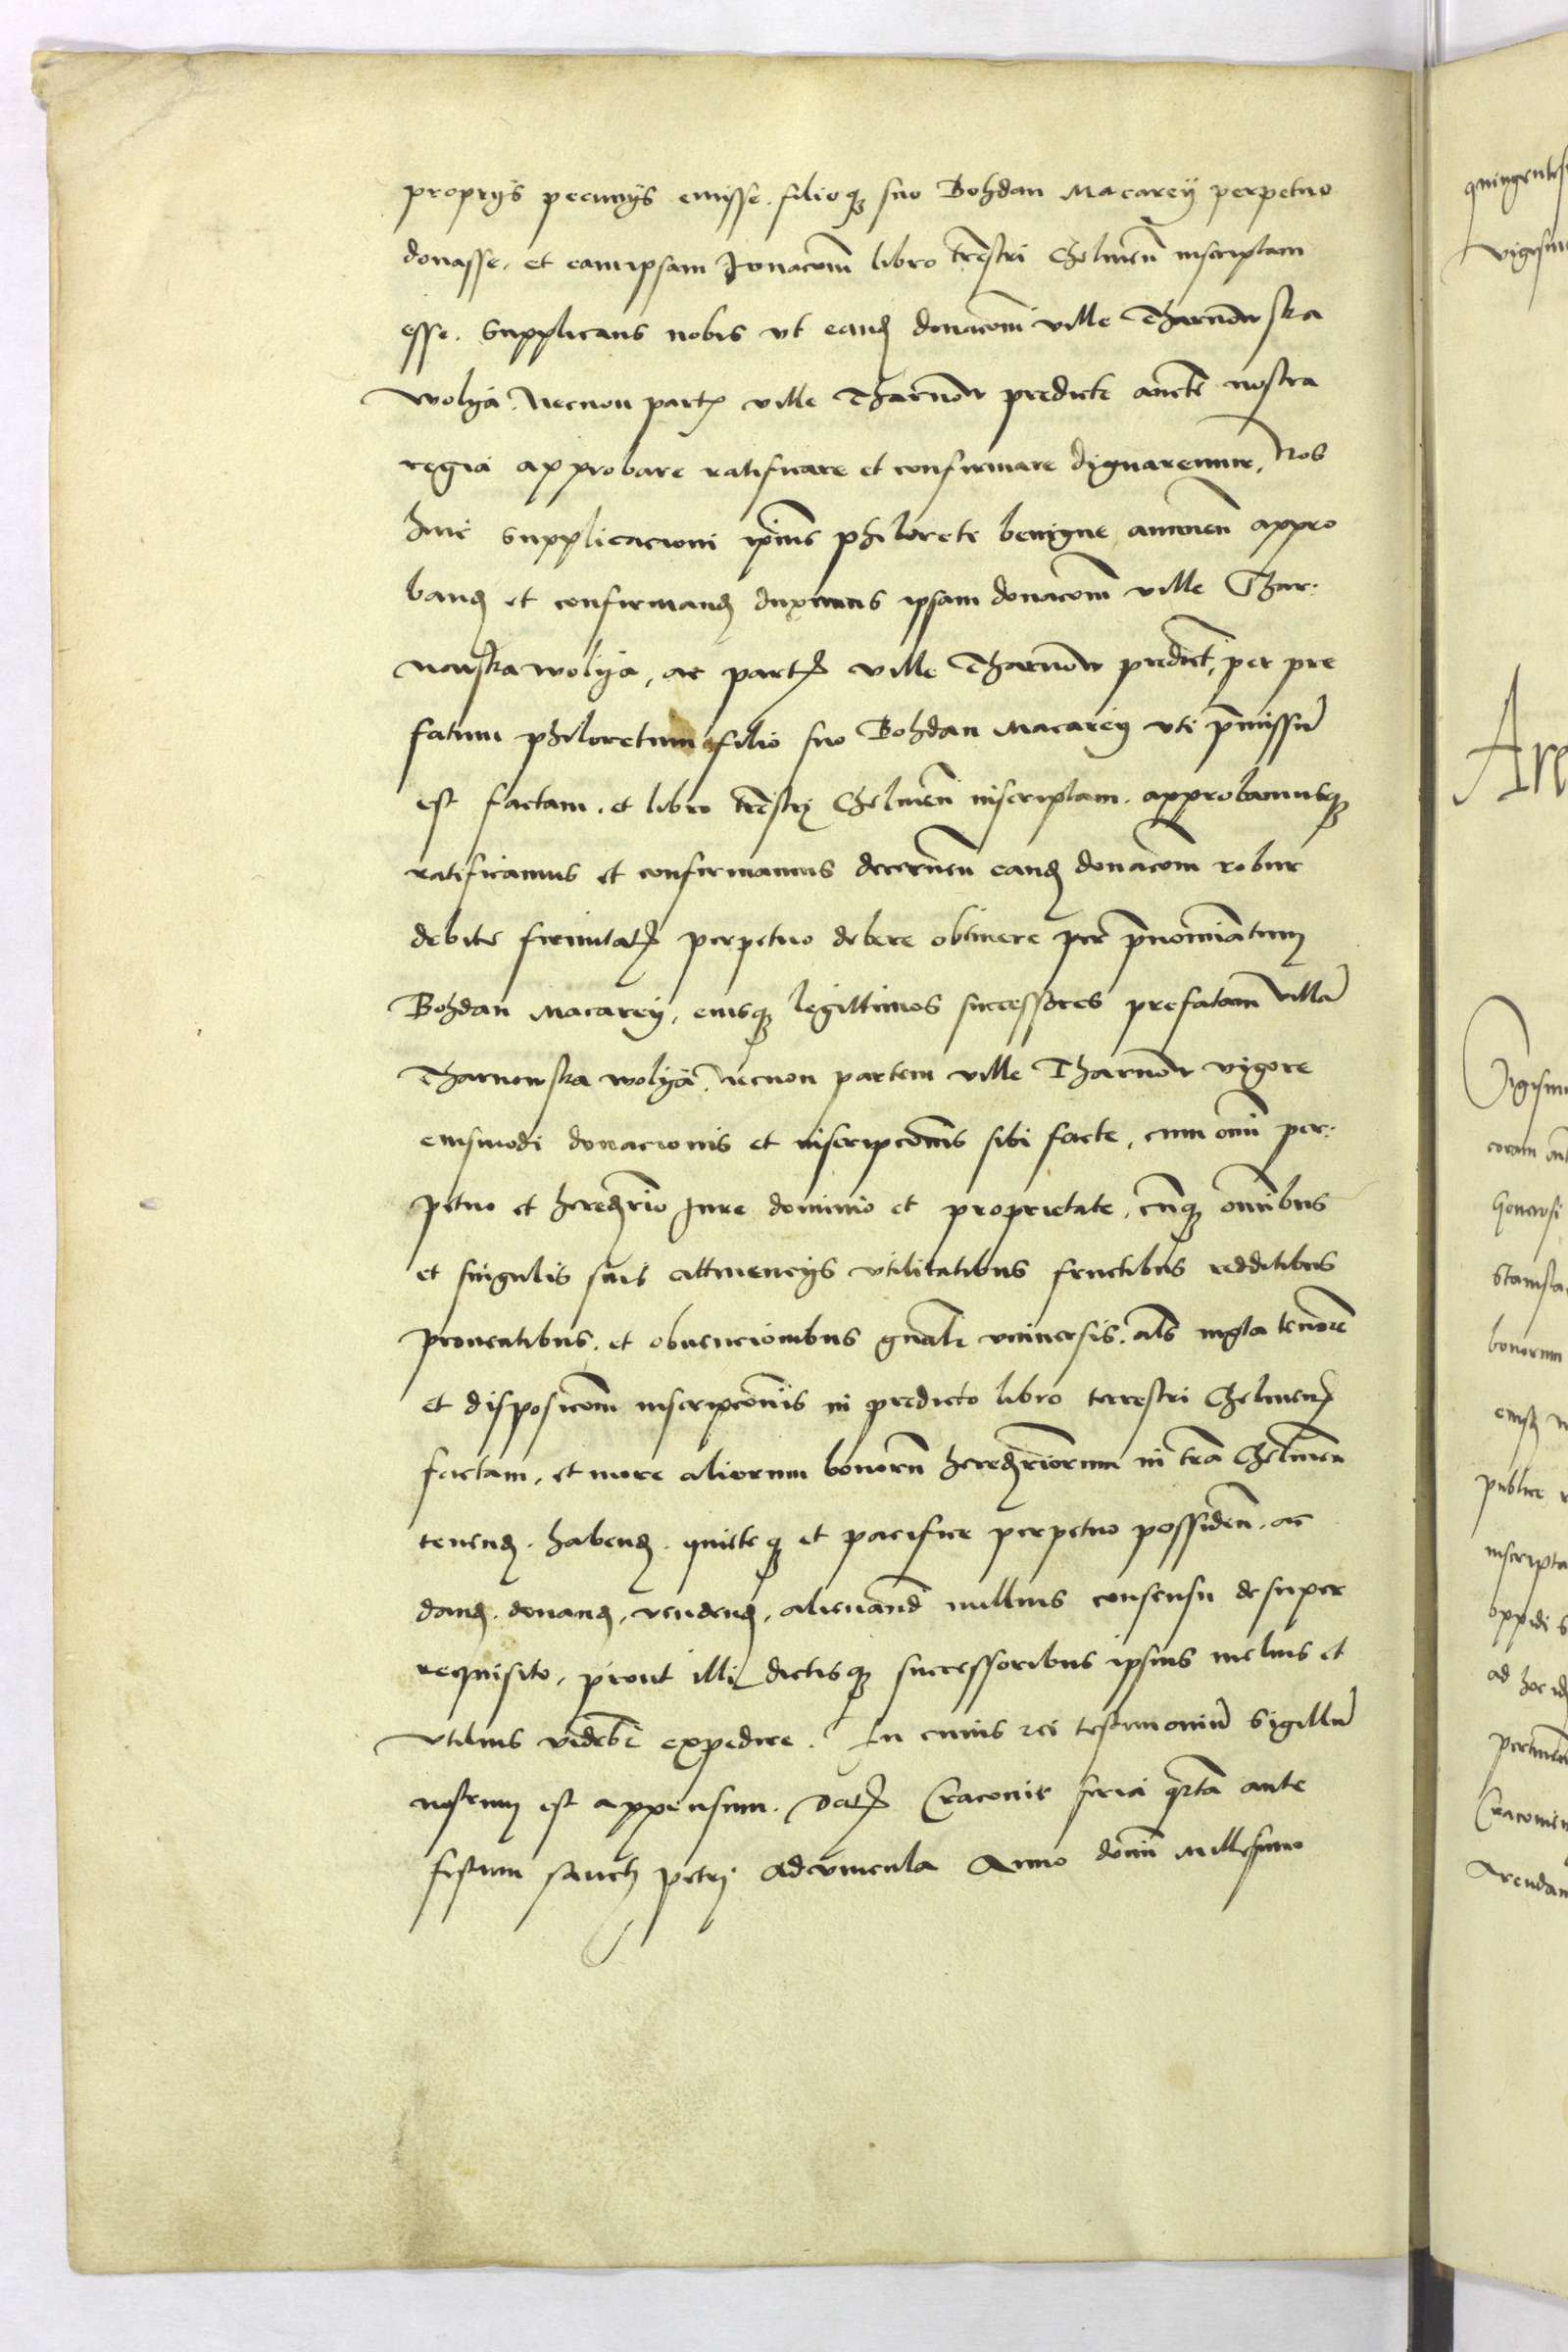 proprys pecunys emisse. filioq; suo Bohdan Macareÿ perpetuo
donasse. et eamipsam donacõm libro trrestri Chelmeñ inscriptam
esse. Supplicans nobis vt eand donacõm ville Tharnowska
wolya. Necnon partis ville Tharnow predicte aucte nostra
regia approbare ratificare et confirmare dignaremur, Nos
huic supplicacioni ipius philoreti benigne annuen appro
band et confirmand duximus ipsam donacõm ville Thar:
nowska wolya, ac partis ville Tharnow predict, per pre
fatum philoretum filio suo Bohdan Macarey vti pmissu
est factam. et libro trestri Chelmeñ inscriptam. approbamusq;
ratificamus et confirmamus decerneñ eand donacõm robur
debite firmitatis perpetuo debere obtinere per pnominatum
Bohdan Macarey, eiusq; legittimos successores prefatam villa
Tharnowska wolya. Necnon partem ville Tharnow vigore
eiusmodi donacionis et inscripcõnis sibi facte, cum omi per:
petuo et heredrio Jure dominio et proprietate, cuq; omibus
et singulis suis attinencys vtilitatibus fructibus redditibus
prouentibus. et obuencionibus gnalr vniuersis. als iuxta tenore
et disposicõm inscripcõnis in predicto libro terrestri Chelmeñ
factam, et more aliorum bonoru heredriorum in tra Chelmeñ
tenend. habend. quieteq; et pacifice perpetuo possideñ. ac
dand. donand, vendend, alienand nullius consensu desuper
requisito, prout illi dictisq; successoribus ipsius melius et
vtilius videbr expedire. In cuius rei testimoniu Sigillu
nostrum est appensum. Datis Cracouie feria qrta ante
festum sancti petri aduincula Anno domi Millesimo